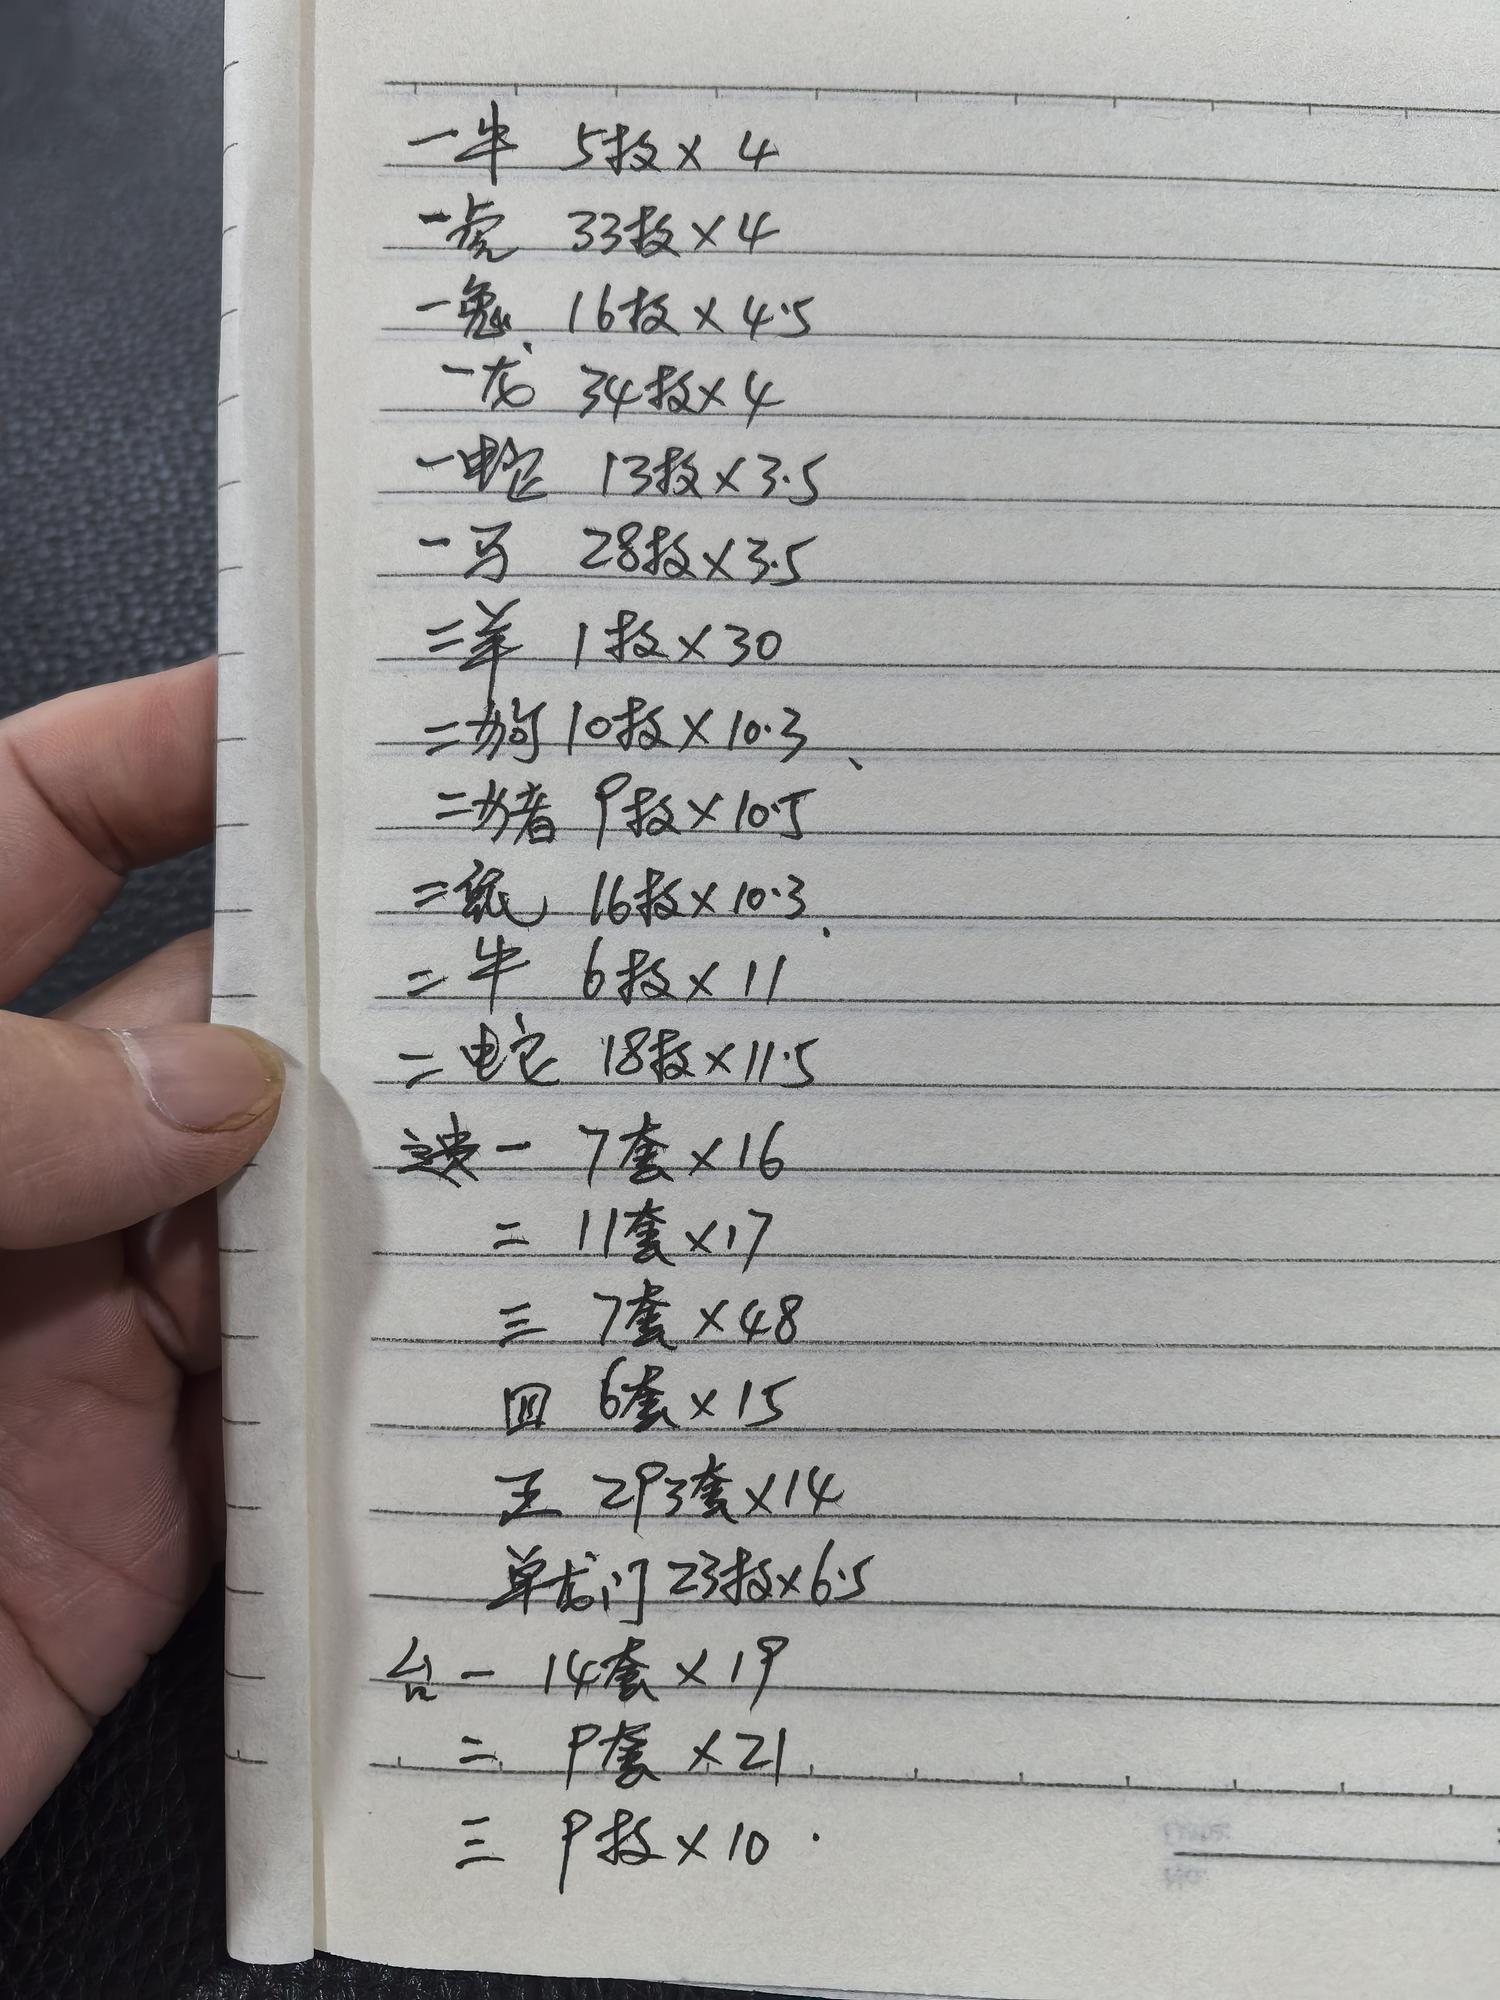 一牛 5枚×4
一虎 33枚×4
一兔 16枚×4.5
一龙 34枚×4
一蛇 13枚×3.5
一马 28枚×3.5
二羊 1枚×30
二狗 10枚×10.3
二猪 9枚×10.5
二鼠 16枚×10.3
二牛 6枚×11
二蛇 18枚×11.5
遗一 7套×16
二 11套×17
三 7套×48
四 6套×15
五 293套×14
单龙门 23枚×6.5
台一 14套×19
二 9套×21
三 9枚×10